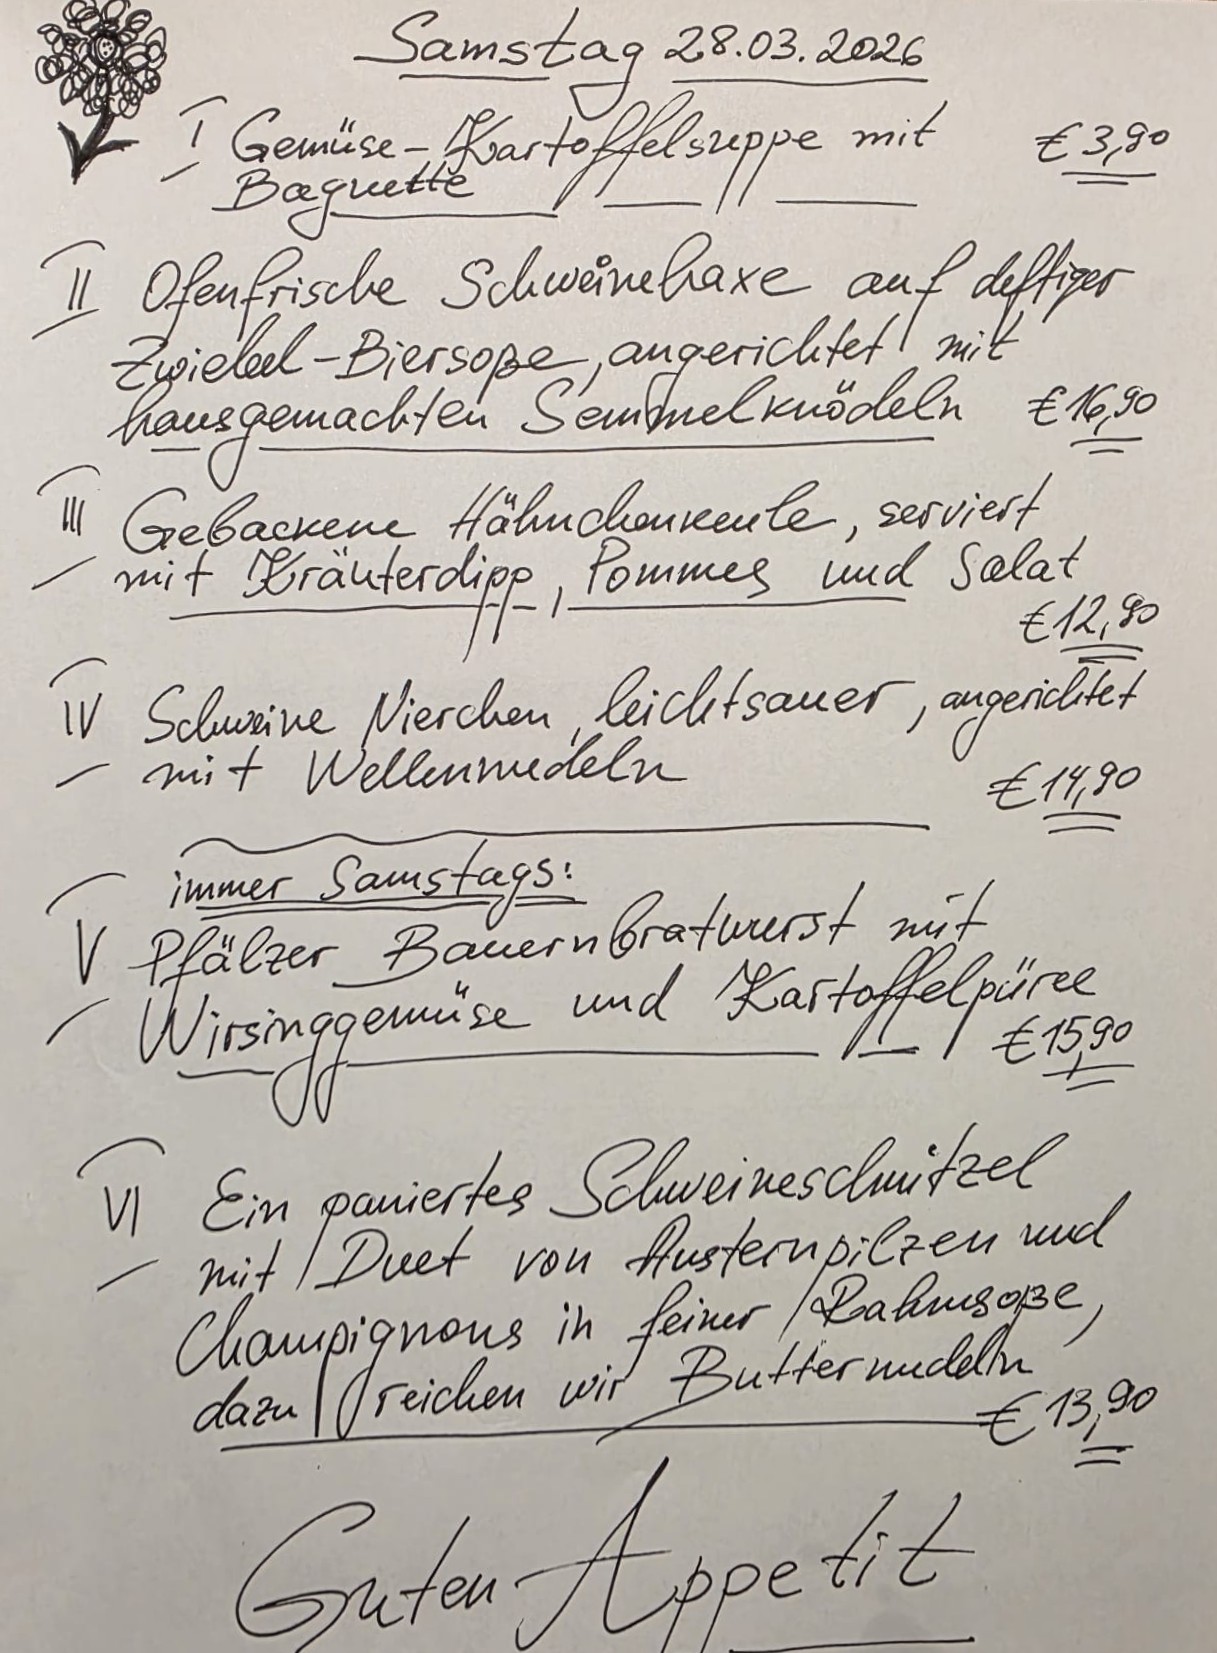 Samstag 28.03.2026
I Gemüse-Kartoffelsuppe mit € 3,90
Baguette
II Ofenfrische Schweinehaxe auf deftiger
Zwiebel-Biersoße, angerichtet mit
hausgemachten Semmelknödeln € 16,90
III Gebackene Hähnchenkeule, serviert
mit Kräuterdipp, Pommes und Salat
€ 12,90
IV Schweine Nierchen, leichtsauer, angerichtet
mit Wellennudeln
€ 14,90
immer Samstags:
V Pfälzer Bauernbratwurst mit
Wirsinggemüse und Kartoffelpüree
€ 15,90
VI Ein paniertes Schweineschnitzel
mit Duet von Austernpilzen und
Champignons in feiner Rahmsoße,
dazu reichen wir Butternudeln
€ 13,90
Guten Appetit